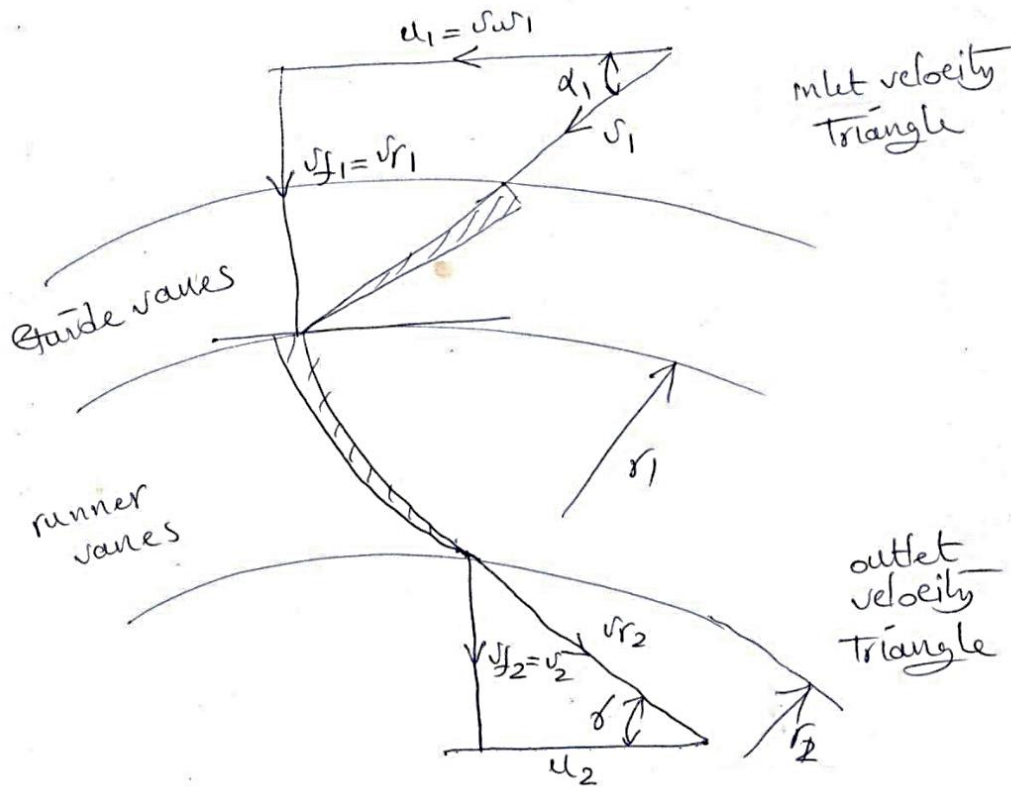 u1 = vw1
α1
v1
inlet velocity
Triangle
vf1 = vr1
Guide vanes
r1
runner
vanes
outlet
velocity
Triangle
vr2
vf2 = v2
γ
r2
u2